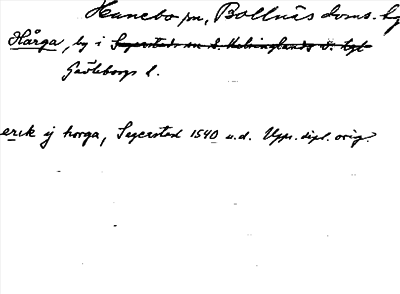 Hanebo sn, Bollnäs doms. hg
Hårga, by i Segerstads sn S. Helsinglands v. tgl
Gävleborgs l.
erik ij horga, Segerstad 1540 u.d. Upps. dipl. orig.